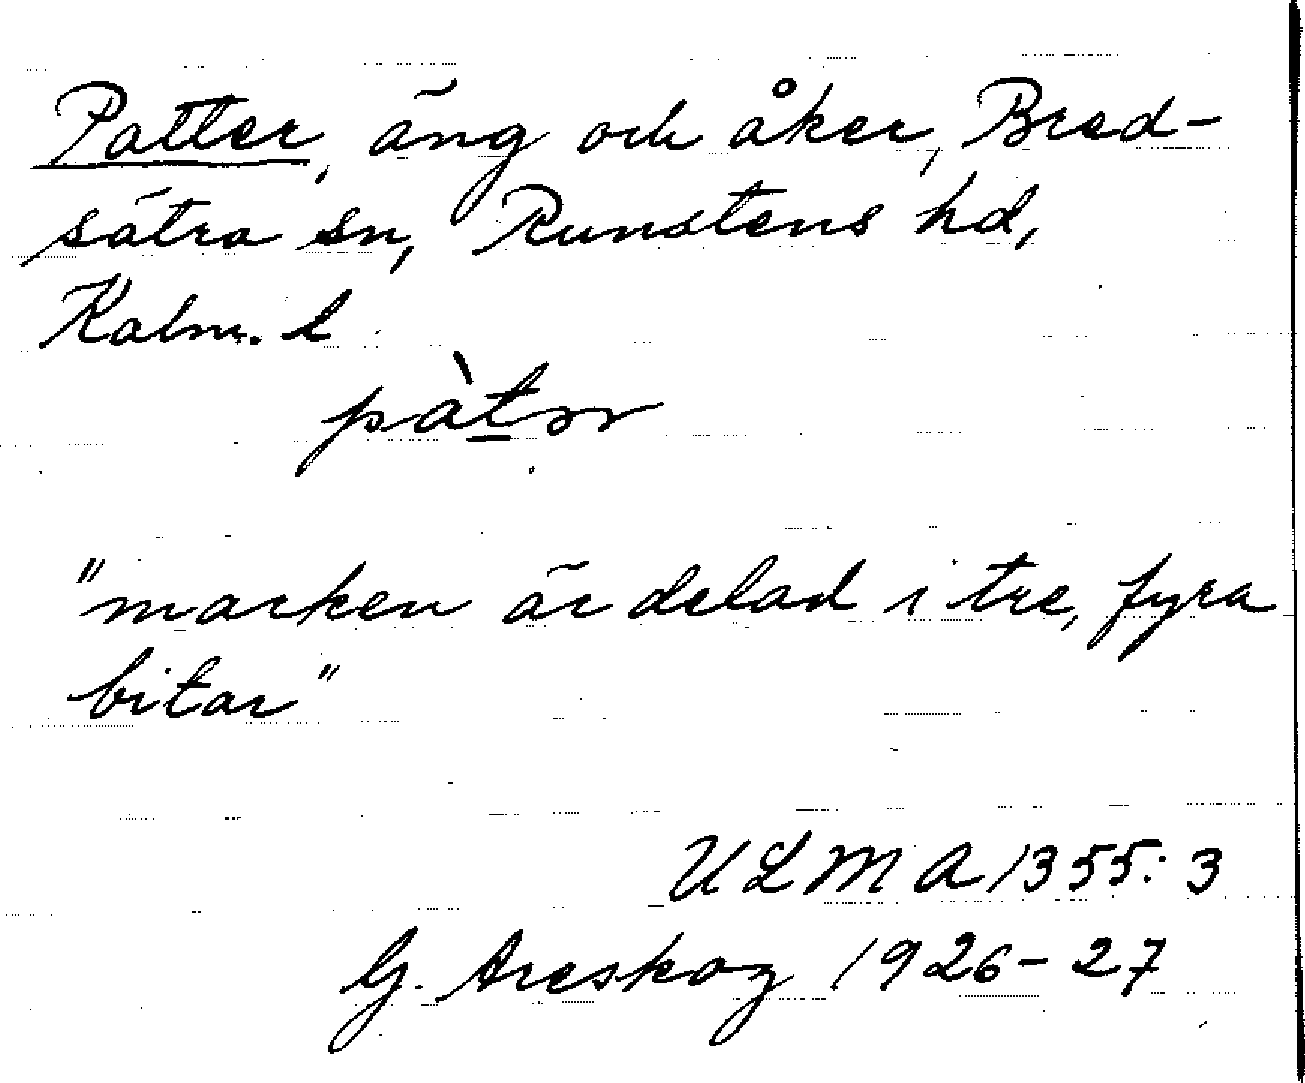 Patter, äng och åker, Bred-
sätra sn, Runstens hd,
Kalm. l
"marken är delad i tre, fyra
bitar"
ULMA 1355:3
G. Areskog 1926-27